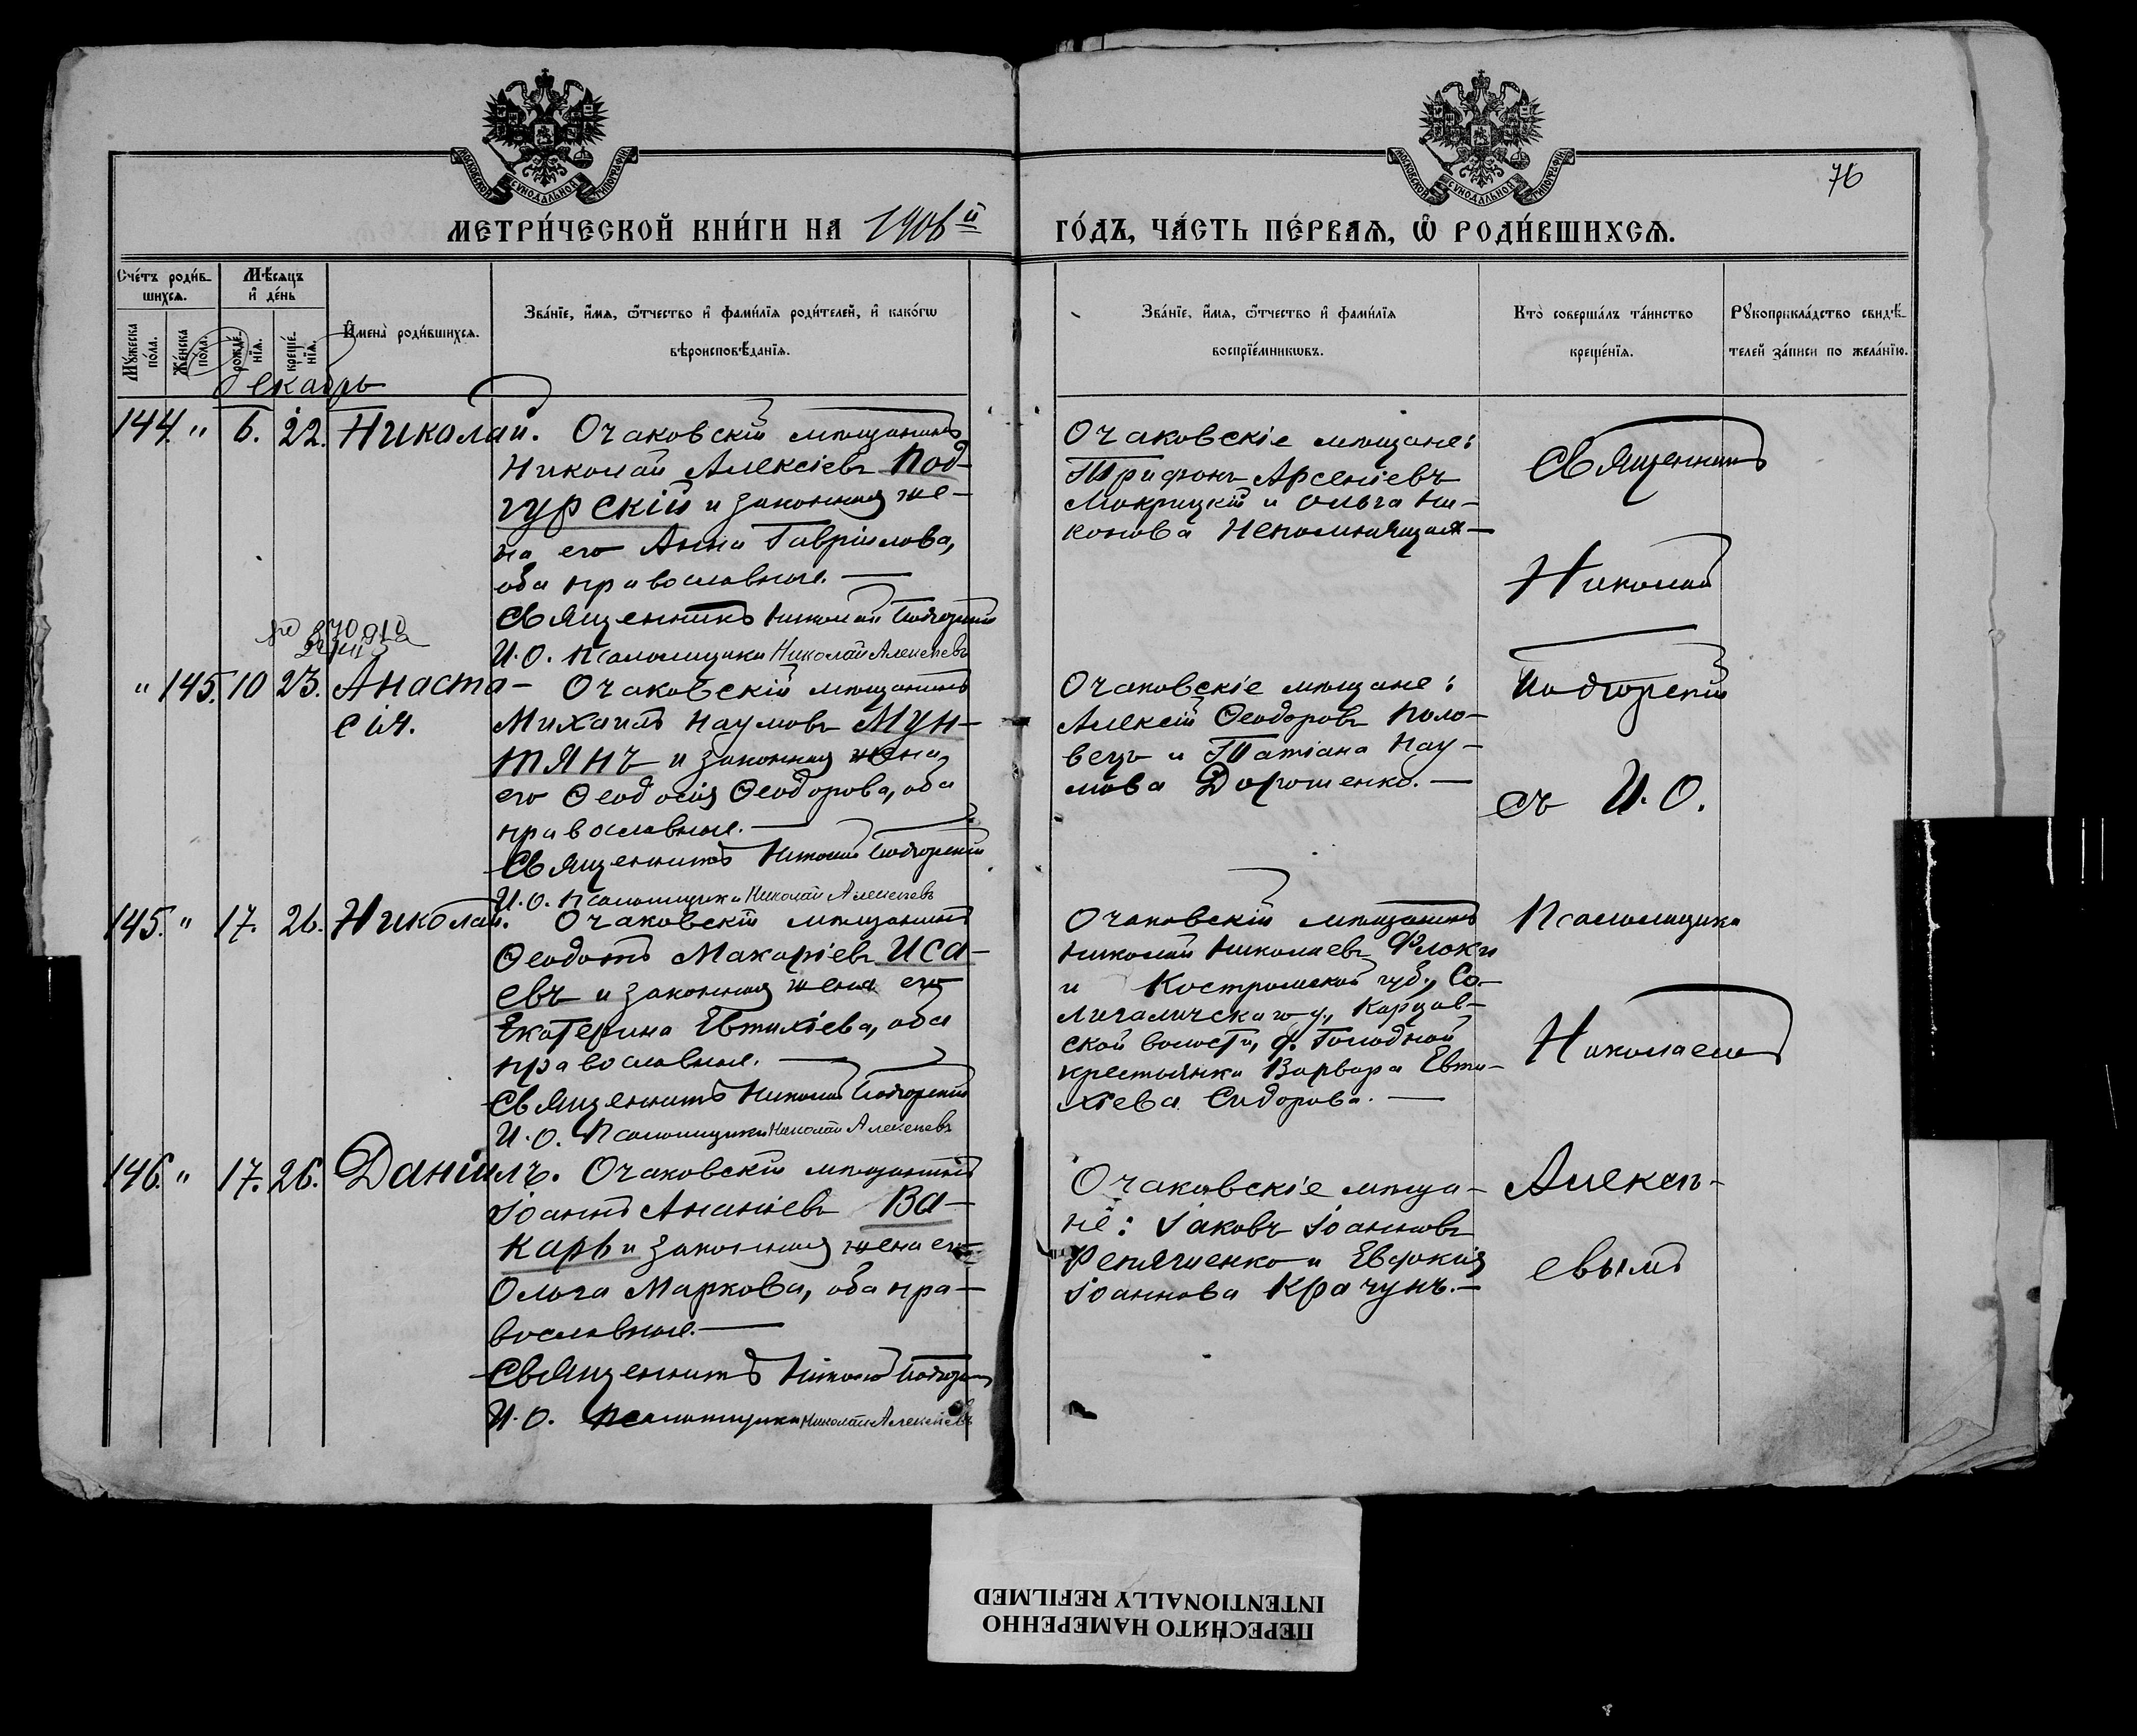 МОСКОВСКОЙ СѴНОДАЛЬНОЙ ТИПОГРАФІИ
МОСКОВСКОЙ СѴНОДАЛЬНОЙ ТИПОГРАФІИ
76
МЕТРИ́ЧЕСКОЙ КНИ́ГИ НА 1906й
ГО́ДЪ, ЧА́СТЬ ПЕ́РВАѦ, Ѡ РОДИ́ВШИХСѦ.
Сче́тъ роди́в-
шихсѧ.
Мѣ́сѧцъ
и де́нь
Мꙋ́жеска
по́ла.
Же́нска
по́ла.
рожде́-
нїѧ.
креще́-
нїѧ.
И҆мена̀ роди́вшихсѧ.
Зва́нїе, и҆́мѧ, ѿчество и҆ фами́лїѧ роди́телей, и҆ како́гѡ
вѣроисповѣ́данїѧ.
Зва́нїе, и҆́мѧ, ѿчество и҆ фами́лїѧ
воспрїе́мникѡвъ.
Кто̀ соверша́лъ та́инство
креще́нїѧ.
Рꙋкоприкла́дство свидѣ́-
телей за́писи по жела́нїю.
Декабрь
144. " 6. 22. Николай. Очаковскій мѣщанинъ
Николай Алексіевъ Под-
гурскій и законная же-
на его Анна Гавріилова,
оба православные.
Священникъ Николай Подгорскій
И. О. Псаломщика Николай Алексѣевъ
Очаковскіе мѣщане:
Трифонъ Арсеніевъ
Мокрицкій и Ольга Ни-
конова Непомнящая
" 145. 10 23. Анаста-
сія.
Очаковскій мѣщанинъ
Михаилъ Наумовъ Мун-
тянъ и законная жена
его Ѳеодосія Ѳеодорова, оба
православные.
Священникъ Николай Подгорскій
И. О. Псаломщика Николай Алексѣевъ
Очаковскіе мѣщане:
Алексій Ѳеодоровъ Поло-
вецъ и Татіана Нау-
мова Дорошенко.
145. " 17. 26. Николай. Очаковскій мѣщанинъ
Ѳеодотъ Макаріевъ Иса-
евъ и законная жена его
Екатерина Евтихіева, оба
православные.
Священникъ Николай Подгорскій
И. О. Псаломщика Николай Алексѣевъ
Очаковскій мѣщанинъ
Николай Николаевъ Флоки
и Костромской губ., Со-
лигаличскаго у., Карцов-
ской волости, д. Голодной
крестьянка Варвара Евти-
хіева Сидорова.
146. " 17. 26. Даніилъ. Очаковскій мѣщанинъ
Іоаннъ Ананіевъ Ва-
карь и законная жена его
Ольга Маркова, оба пра-
вославные.
Священникъ Николай Подгорскій
И. О. Псаломщика Николай Алексѣевъ
Очаковскіе мѣща-
не: Іаковъ Іоанновъ
Репяшенко и Евдокія
Іоаннова Крачунъ.
Священникъ
Николай
Подгорскій
съ И. О.
Псаломщика
Николаемъ
Алексѣ-
евымъ
ПЕРЕСНЯТО НАМЕРЕННО
INTENTIONALLY REFILMED